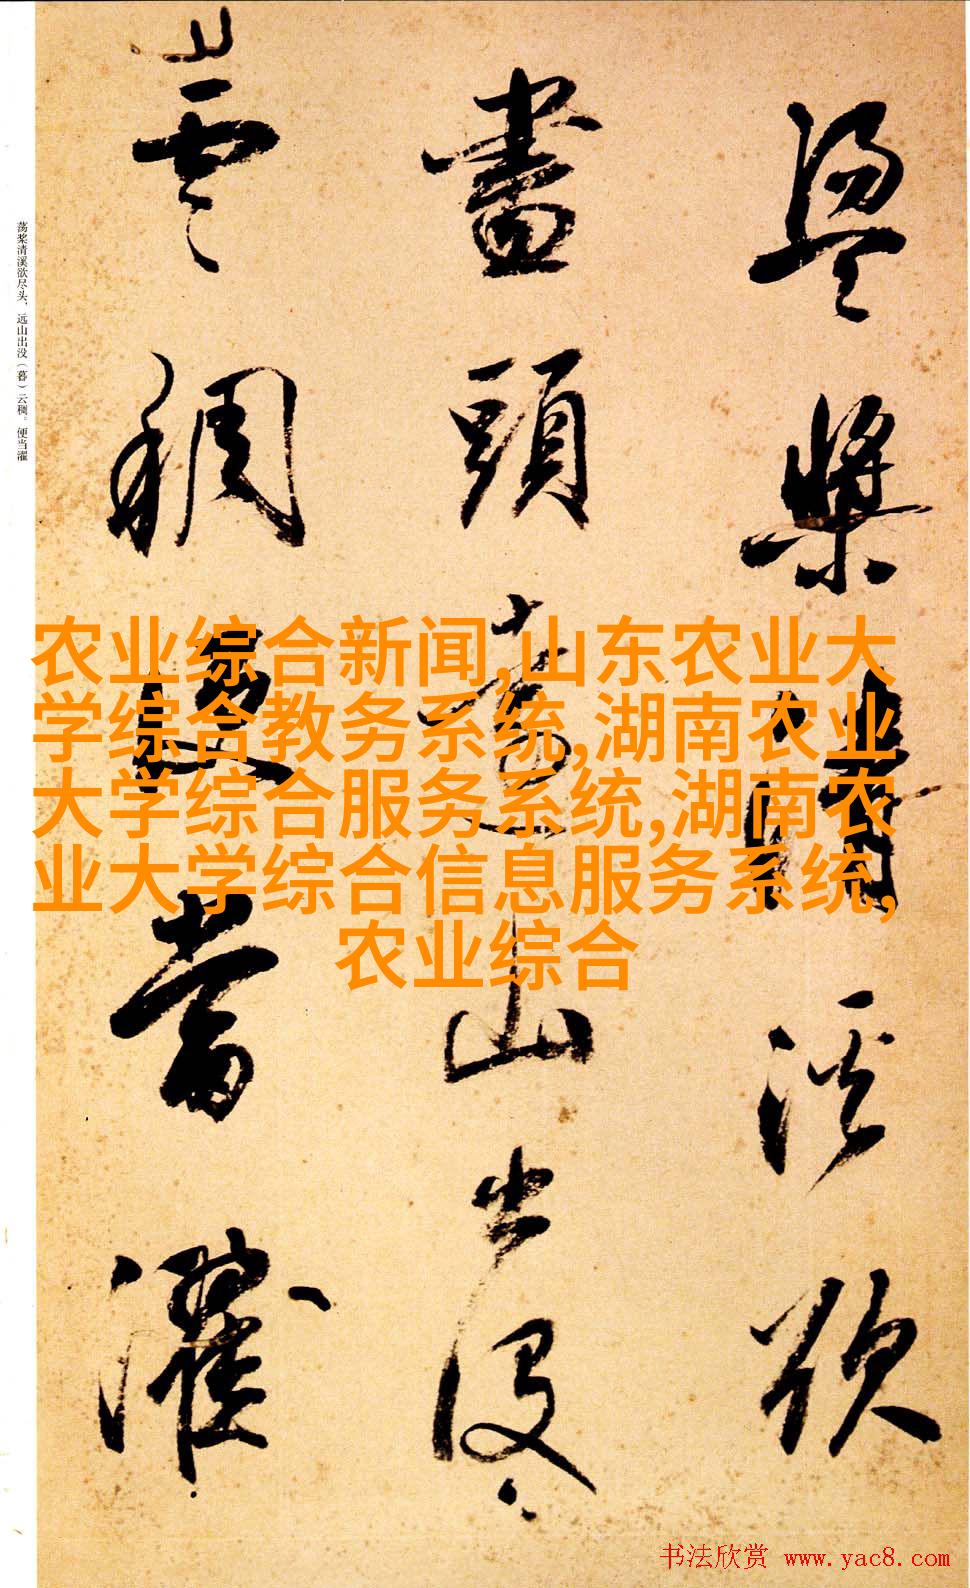 盪槳清溪欲
盡頭遠山出沒
雲稠便當濯
荡桨清溪欲尽头，远山出没（暮）云稠。便当濯
农业综合新闻,山东农业大
学综合教务系统,湖南农业
大学综合服务系统,湖南农
业大学综合信息服务系统,
农业综合
书法欣赏 www.yac8.com